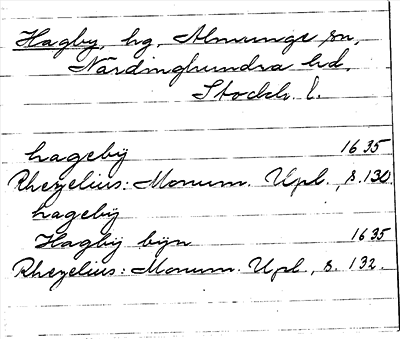 Hagby, hg, Almunge sn,
Närdinghundra hd,
Stockh. l.
hagebÿ 1635
Rhezelius: Monum. Upl., s. 130.
hagebÿ
Hagbÿ bijn 1635
Rhezelius: Monum. Upl., s. 132.